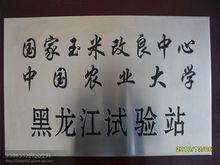 国家玉米改良中心
中国农业大学
黑龙江试验站
2010/12/06